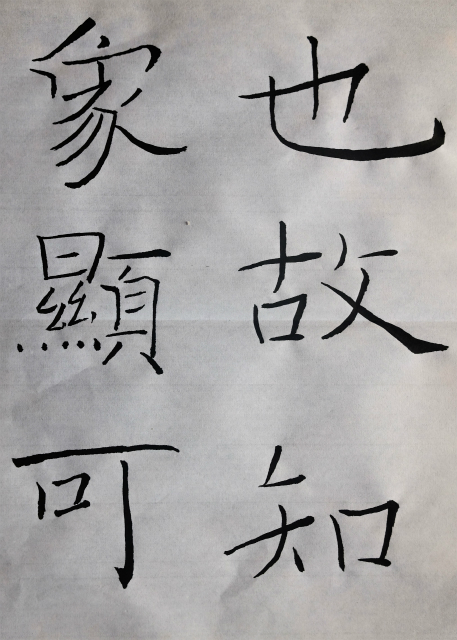 也故知
象顯可